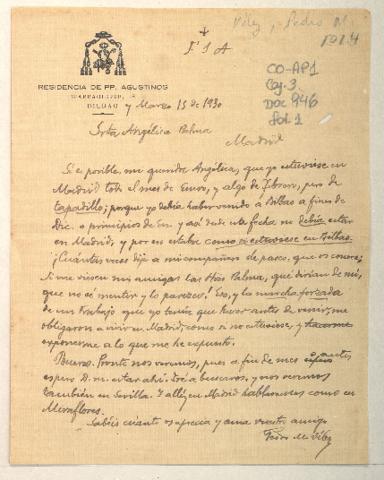 Vélez, Pedro M.
J. S. A
CO-AP1
Caj-3
Doc 946
Fol. 1
RESIDENCIA DE PP. AGUSTINOS
BILBAO y Marzo 15 de 1930
Srta Angélica Palma
Madrid
Sí es posible, mi querida Angélica, que yo estuviese en
Madrid todo el mes de Enero, y algo de Febrero, pero de
tapadillo; porque yo debía haber venido a Bilbao a fines de
Dic. o principios de En. y así desde esta fecha no debía estar
en Madrid, y por eso estaba como si estuviese en Bilbao.
¡Cuántas veces dije a mi compañero de paseo, que os conoce:
Si me viesen mis amigas las Stas Palma, qué dirían de mí,
que no sé mentir y lo parezco! Eso, y la marcha forzada
de un trabajo que yo tenía que hacer antes de venir, me
obligaron a vivir en Madrid, como si no estuviese, y
exponerme a lo que me he expuesto.
Bueno. Pronto nos veremos, pues a fin de mes o antes
espero D. m. estar ahí. Iré a buscaros, y nos veremos
también en Sevilla. Y allí y en Madrid hablaremos como en
Miraflores.
Sabéis cuánto os aprecia y ama vuestro amigo
Pedro M. Vélez